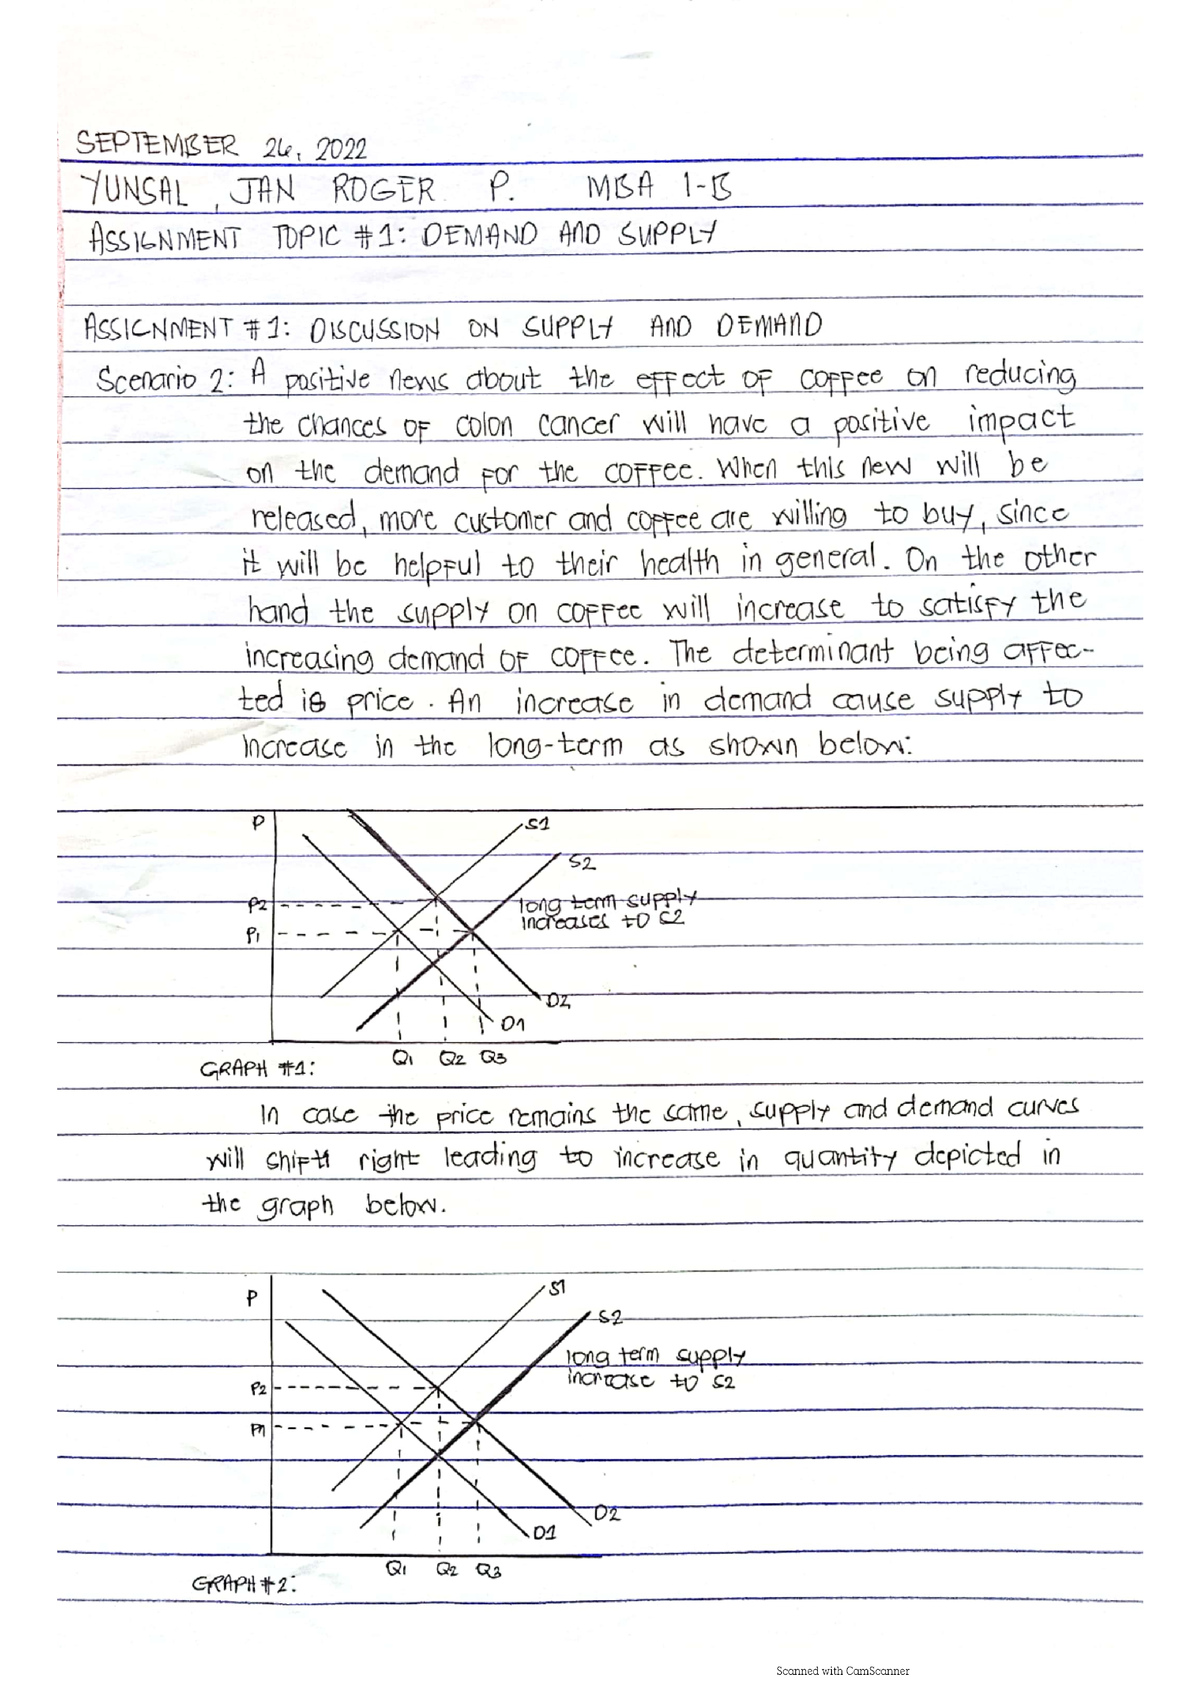 SEPTEMBER 26, 2022
YUNSAL, JAN ROGER P. MBA 1-B
ASSIGNMENT TOPIC #1: DEMAND AND SUPPLY
ASSIGNMENT #1: DISCUSSION ON SUPPLY AND DEMAND
Scenario 2: A positive news about the effect of coffee on reducing
the chances of colon cancer will have a positive impact
on the demand for the coffee. When this new will be
released, more customer and coffee are willing to buy, since
it will be helpful to their health in general. On the other
hand the supply on coffee will increase to satisfy the
increasing demand of coffee. The determinant being affec-
ted is price. An increase in demand cause supply to
increase in the long-term as shown below:
P
S1
S2
P2
long term supply
increases to S2
P1
D2
D1
Q1 Q2 Q3
GRAPH #1:
In case the price remains the same, supply and demand curves
will shift right leading to increase in quantity depicted in
the graph below.
P
S1
S2
long term supply
increase to S2
P2
P1
D2
D1
Q1 Q2 Q3
GRAPH #2:
Scanned with CamScanner